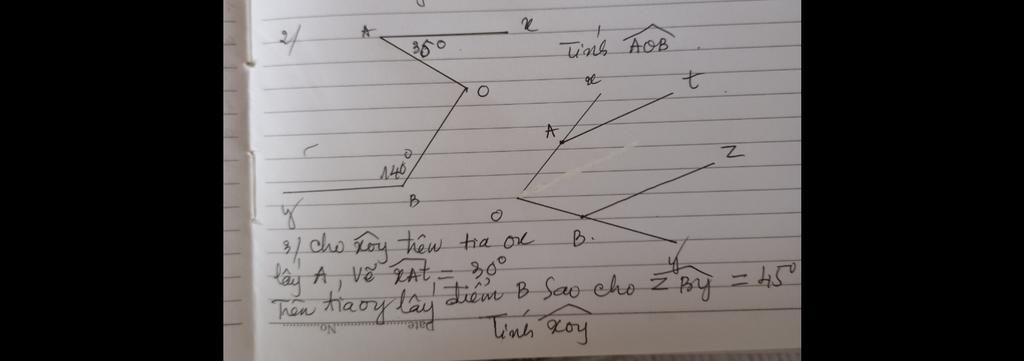 2/
A
x
35°
Tính AOB
O
x
t
A
140°
z
y
B
O
B.
3/ cho xoy trên tia ox
y
lấy A, vẽ xAt = 30°
trên tia oy lấy điểm B sao cho zBy = 45°
Tính xoy
Date No.